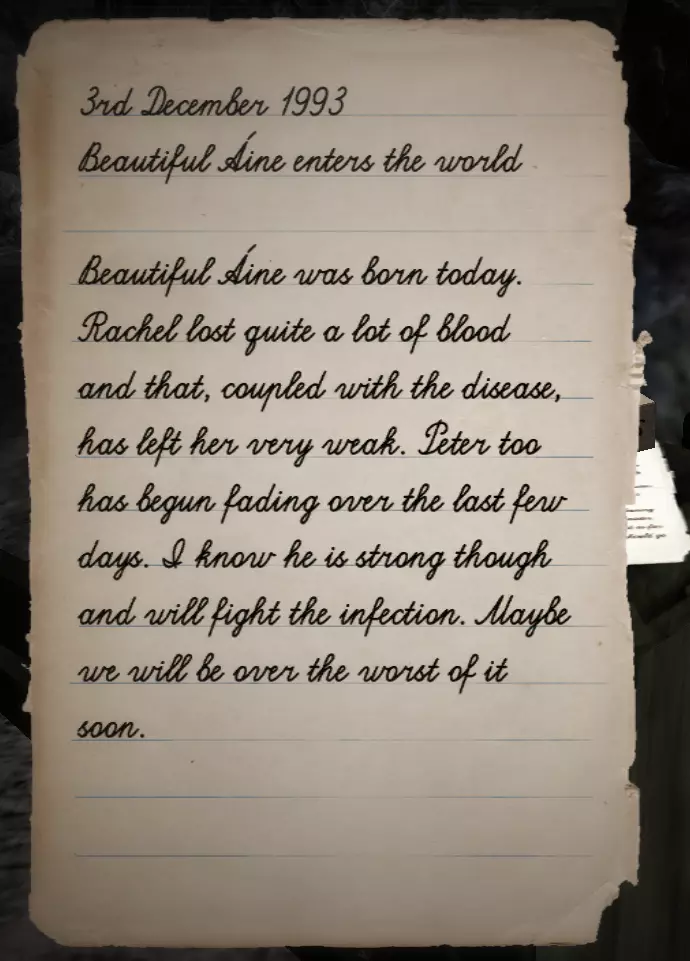 3rd December 1993
Beautiful Áine enters the world
Beautiful Áine was born today.
Rachel lost quite a lot of blood
and that, coupled with the disease,
has left her very weak. Peter too
has begun fading over the last few
days. I know he is strong though
and will fight the infection. Maybe
we will be over the worst of it
soon.